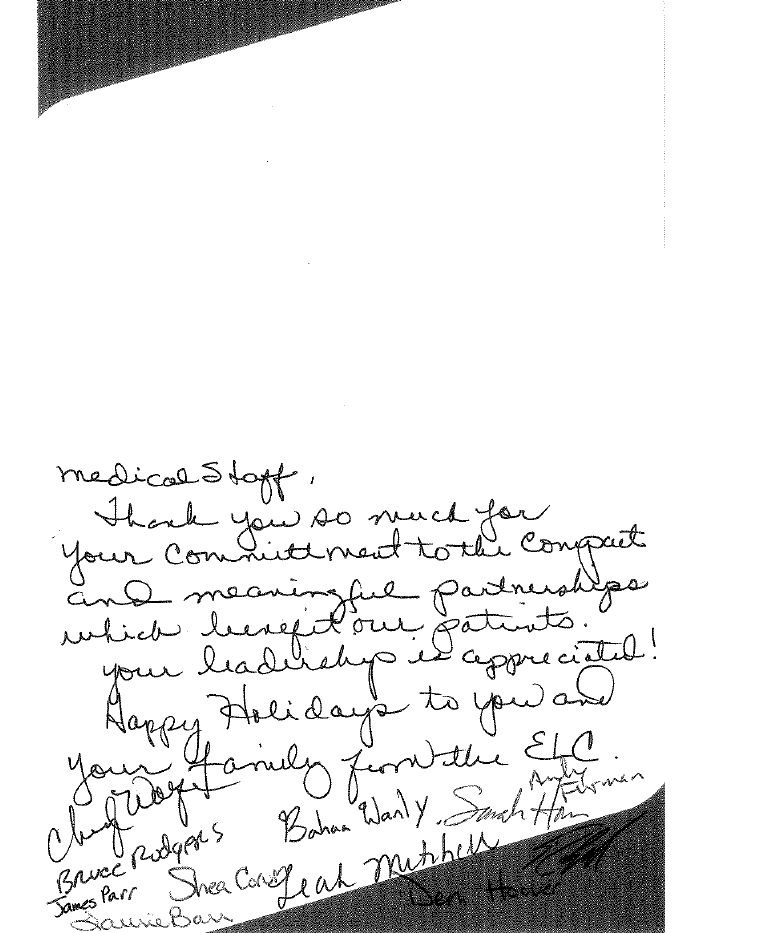 medical Staff,
Thank you so much for
your committment to the Compact
and meaningful partnerships
which benefit our patients.
your leadership is appreciated!
Happy Holidays to you and
your family from the ELC.
Cheryl Wolfe
Andy
Furman
Bahaa Wanly
Sarah
Bruce Rodgers
Leah Mitchell
Shea
James Parr
Deni Hoover
Laurie Barr